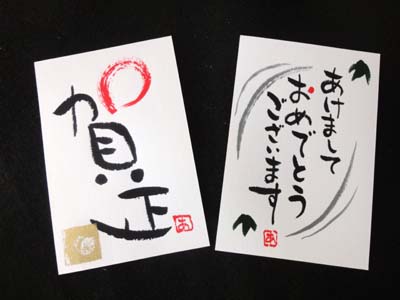 賀正
あ
あけまして
おめでとう
ございます
あ